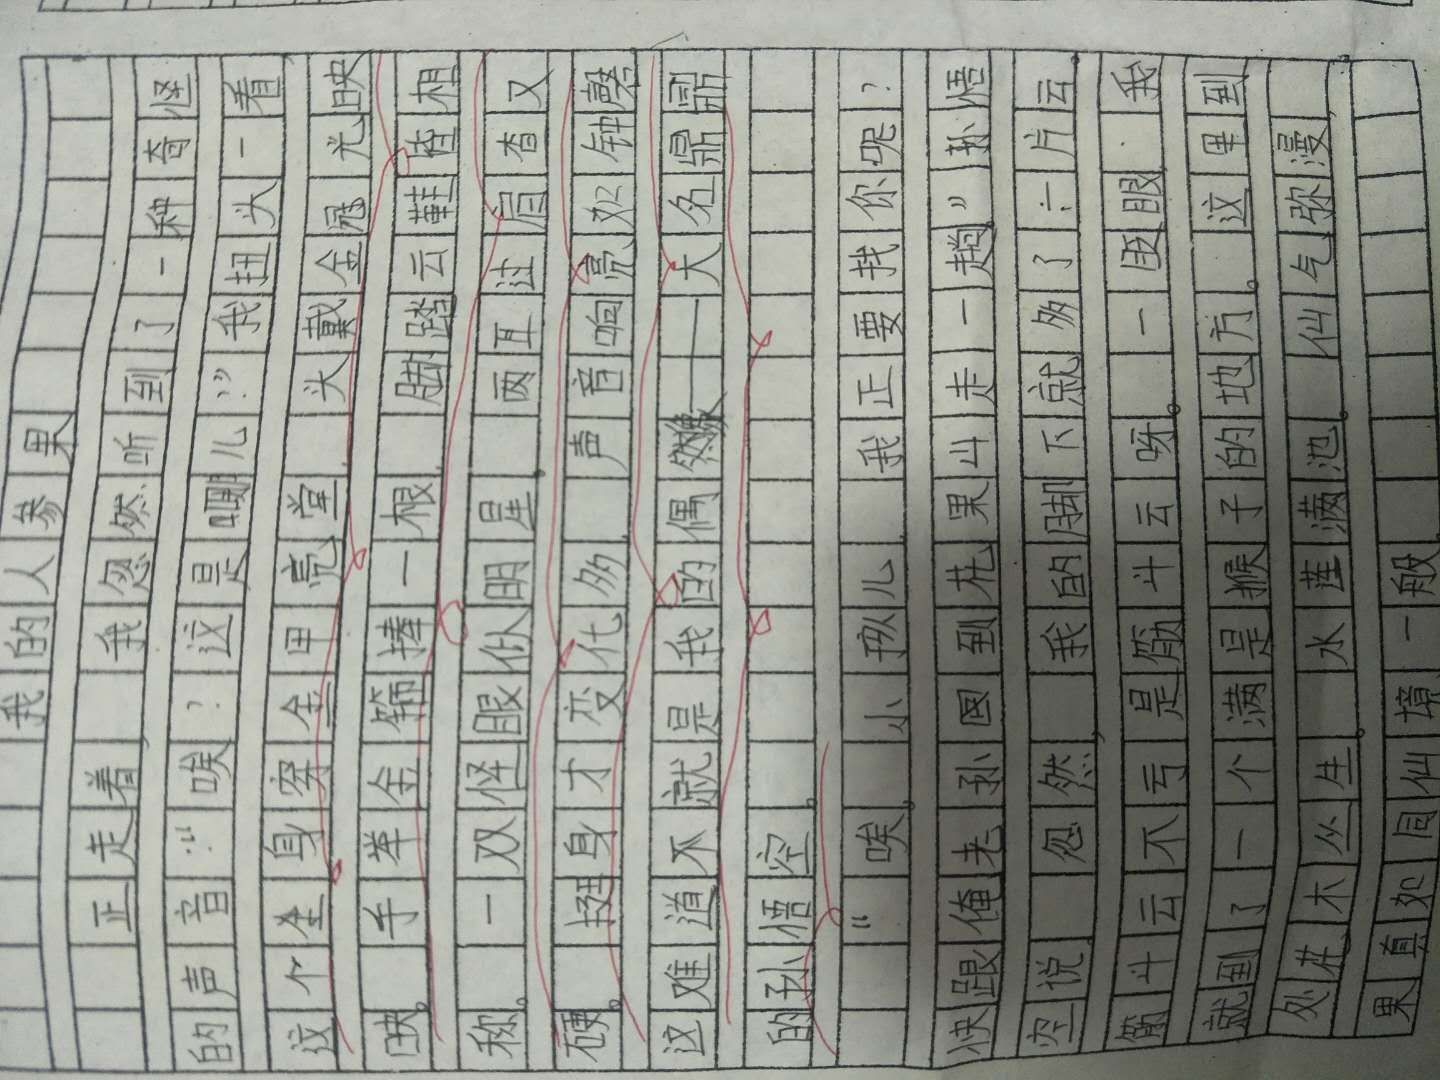 我的人参果
正走着,我忽然听到了一种奇怪
的声音:“唉?这是哪儿?”我扭头一看
这个全身穿金甲亮堂,头戴金冠光映
映。手举金箍棒一根,脚踏云鞋皆相
称。一双怪眼似明星。两耳过肩查又
硬。挺身才变化多,声音响亮如钟磬
这难道不就是我的偶像——大名鼎鼎
的孙悟空。
“唉,小孩儿,我正要找你呢?
快跟俺老孙回到花果山走一趟”孙悟
空说,忽然,我的脚下就多了一片云。
筋斗云不亏是筋斗云呀。一眨眼,我
就到了一个满是猴子的地方。这里到
处花木丛生。水莲满池。仙气弥漫,
果真如同仙境一般